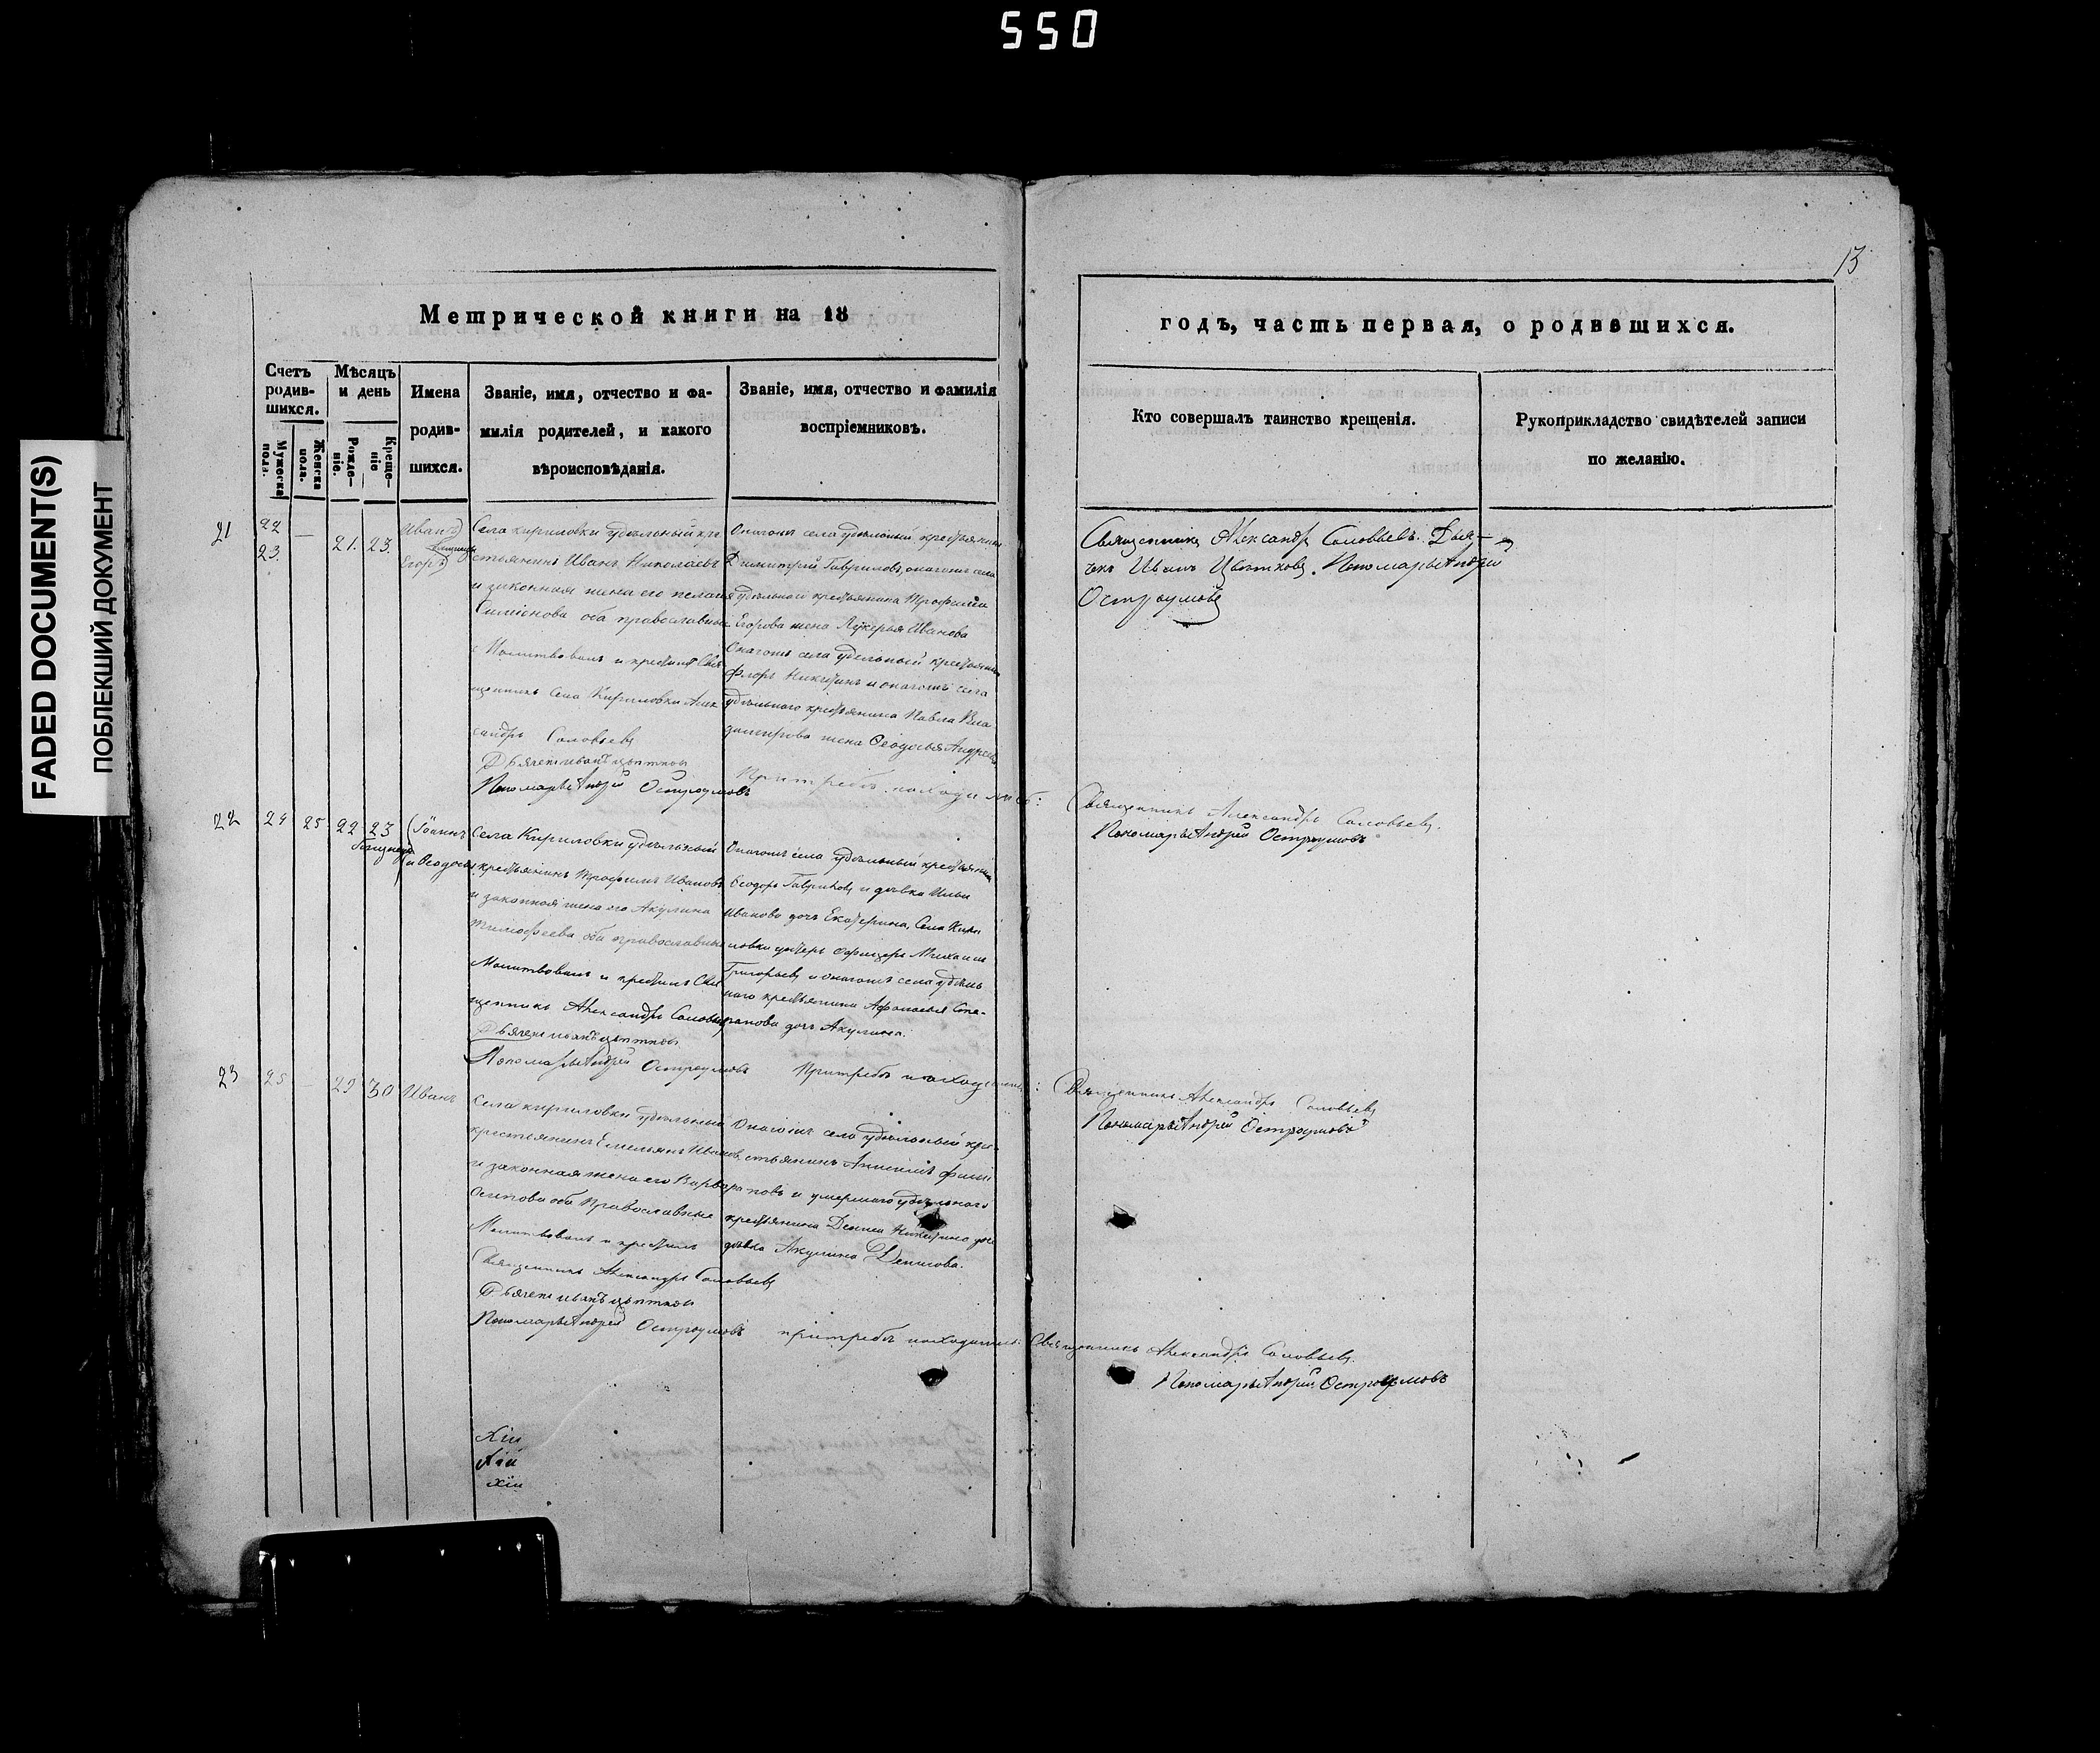 550
FADED DOCUMENT(S)
ПОБЛЕКШИЙ ДОКУМЕНТ
13
Метрической книги на 18
Счетъ родив-шихся.
Мужеска пола.
Женска пола.
Мѣсяцъ и день
Рожде-ніе.
Креще-ніе
Имена
родив-
шихся.
Званіе, имя, отчество и фа-
милія родителей, и какого
вѣроисповѣданія.
Званіе, имя, отчество и фамилія
воспріемниковъ.
годъ, часть первая, о родившихся.
Кто совершалъ таинство крещенія.
Рукоприкладство свидѣтелей записи
по желанію.
21
22
23.
—
21.
23.
Иванъ
близнецы
Егоръ
Села Кириловки удѣльный кре
стьянинъ Иванъ Николаевъ
и законная жена его Пелагія
Симіонова оба православные
Молитвовалъ и крестилъ Свя
щенникъ села Кириловки Алек
сандръ Соловьевъ
Дьячекъ Иванъ Цвѣтковъ
Пономарь Андрей Остроумовъ
Онагожъ села удѣльный крестьянинъ
Димитрій Гавриловъ, онагожъ села
удѣльнаго крестьянина Трофима
Егорова жена Лукерья Иванова
Онагожъ села удѣльный крестьянинъ
Флоръ Никитинъ и онагожъ села
удѣльнаго крестьянина Павла Вла
димирова жена Ѳеодосья Андреева
При требѣ находились:
Священникъ Александръ Соловьевъ. Дья-
чекъ Иванъ Цвѣтковъ. Пономарь Андрей
Остроумовъ
Священникъ Александръ Соловьевъ.
Пономарь Андрей Остроумовъ
22
24
25
22
23
Іоаннъ
близнецы
и Ѳеодосья
Села Кириловки удѣльный
крестьянинъ Трофимъ Ивановъ
и законная жена его Акулина
Тимофеева оба православные
Молитвовалъ и крестилъ Свя
щенникъ Александръ Соловьевъ
Дьячекъ Иванъ Цвѣтковъ
Пономарь Андрей Остроумовъ
Онагожъ села удѣльный крестьянинъ
Ѳеодоръ Гавриловъ и дѣвка Ильи
Иванова дочь Екатерина, Села Кири
ловки Михаилъ
Григорьевъ и онагожъ села удѣль
наго крестьянина Афанасья Сте-
панова дочь Акулина.
При требѣ находились:
Священникъ Александръ Соловьевъ
Пономарь Андрей Остроумовъ
23
25
—
29
30
Иванъ
Села Кириловки удѣльный
крестьянинъ Емельянъ Ивановъ
и законная жена его Варвара
Осипова оба Православные
Молитвовалъ и крестилъ
Священникъ Александръ Соловьевъ
Дьячекъ Иванъ Цвѣтковъ
Пономарь Андрей Остроумовъ
Онагожъ села удѣльный кре-
стьянинъ Филип
повъ и умершаго удѣльнаго
крестьянина Дениса Никитина дочь
дѣвка Акулина Денисова.
при требѣ находились:
Священникъ Александръ Соловьевъ.
Пономарь Андрей Остроумовъ